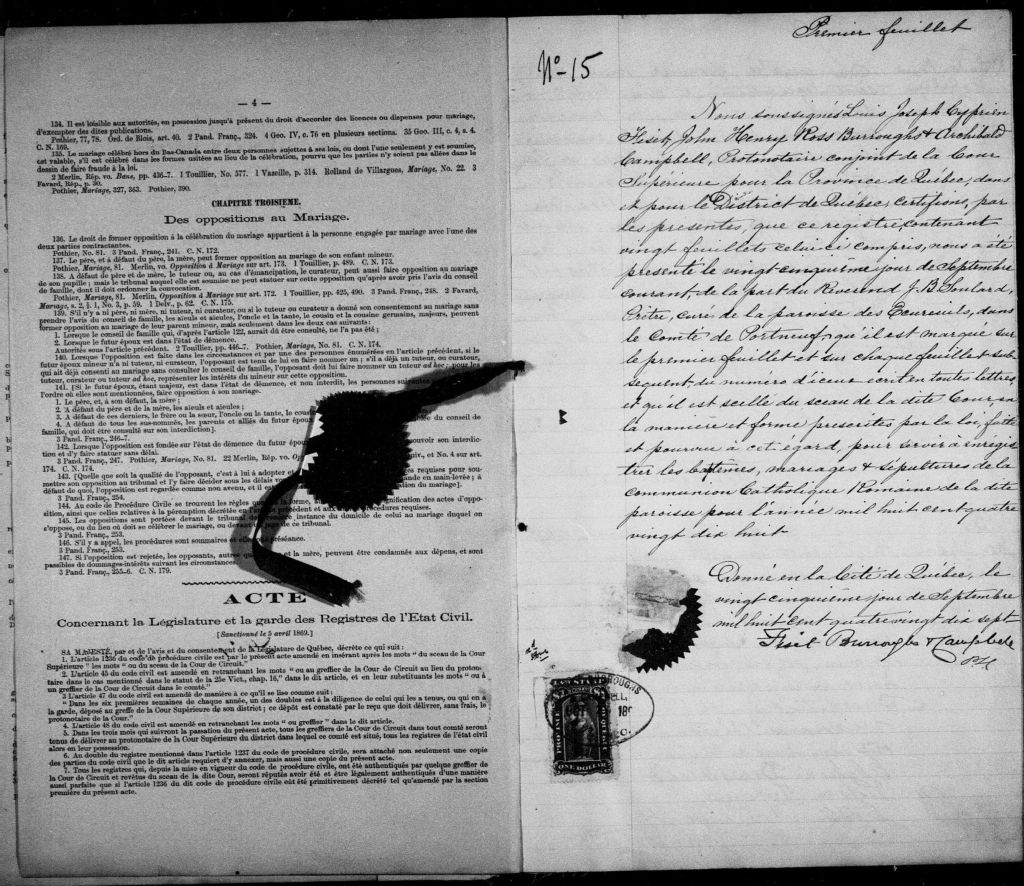 — 4 —
134. Il est loisible aux autorités, en possession jusqu'à présent du droit d'accorder des licences ou dispenses pour mariage,
d'exempter des dites publications.
Pothier, 77, 78. Ord. de Blois, art. 40. 2 Pand. Franç., 324. 4 Geo. IV, c. 76 en plusieurs sections. 35 Geo. III, c. 4, s. 4.
C. N. 169.
135. Le mariage célébré hors du Bas-Canada entre deux personnes sujettes à ses lois, ou dont l'une seulement y est soumise,
est valable, s'il est célébré dans les formes usitées au lieu de la célébration, pourvu que les parties n'y soient pas allées dans le
dessin de faire fraude à la loi.
2 Merlin, Rép. vo. Bans, pp. 436-7. 1 Touillier, No. 577. 1 Vazeille, p. 314. Rolland de Villargues, Mariage, No. 22. 3
Favard, Rép., p. 30.
Pothier, Mariage, 327, 363. Pothier, 390.
CHAPITRE TROISIEME.
Des oppositions au Mariage.
136. Le droit de former opposition à la célébration du mariage appartient à la personne engagée par mariage avec l'une des
deux parties contractantes.
Pothier, No. 81. 3 Pand. Franç., 241. C. N. 172.
137. Le père, et à défaut du père, la mère, peut former opposition au mariage de son enfant mineur.
Pothier, Mariage, 81. Merlin, vo. Opposition à Mariage sur art. 173. 1 Touillier, p. 489. C. N. 173.
138. A défaut de père et de mère, le tuteur ou, au cas d'émancipation, le curateur, peut aussi faire opposition au mariage
de son pupille; mais le tribunal auquel elle est soumise ne peut statuer sur cette opposition qu'après avoir pris l'avis du conseil de
famille, dont il doit ordonner la convocation.
Pothier, Mariage, 81. Merlin, Opposition à Mariage sur art. 172. 1 Touillier, pp. 425, 490. 3 Pand. Franç., 248. 2 Favard,
Mariage, s. 2, § 1, No. 3, p. 59. 1 Delv., p. 62. C. N. 175.
139. S'il n'y a ni père, ni mère, ni tuteur, ni curateur, ou si le tuteur ou curateur a donné son consentement au mariage sans
prendre l'avis du conseil de famille, les aïeuls et aïeules, l'oncle et la tante, le cousin et la cousine germains, majeurs, peuvent
former opposition au mariage de leur parent mineur, mais seulement dans les deux cas suivants:
1. Lorsque le conseil de famille qui, d'après l'article 122, aurait dû être consulté, ne l'a pas été;
2. Lorsque le futur époux est dans l'état de démence.
Autorités sous l'article précédent. 2 Touillier, pp. 446-7. Pothier, Mariage, No. 81. C. N. 174.
140. Lorsque l'opposition est faite dans les circonstances et par une des personnes énumérées en l'article précédent, si le
futur époux mineur n'a ni tuteur, ni curateur, l'opposant est tenu de lui en faire nommer un; s'il a déjà un tuteur, ou curateur,
qui ait déjà consenti au mariage sans consulter le conseil de famille, l'opposant doit lui faire nommer un tuteur ad hoc; pour les
tuteur, curateur ou tuteur ad hoc, représenter les intérêts du mineur sur cette opposition.
141. [Si le futur époux, étant majeur, est dans l'état de démence, et non interdit, les personnes suivantes
l'ordre où elles sont mentionnées, faire opposition à son mariage.
1. Le père, et, à son défaut, la mère;
2. A défaut du père et de la mère, les aïeuls et aïeules;
3. A défaut de ces derniers, le frère ou la sœur, l'oncle ou la tante, le cousin
4. A défaut de tous les sus-nommés, les parents et alliés du futur époux du conseil de
famille, qui doit être consulté sur son interdiction].
3 Pand. Franç., 246-7.
142. Lorsque l'opposition est fondée sur l'état de démence du futur époux voir son interdic-
tion et d'y faire statuer sans délai.
3 Pand. Franç., 247. Pothier, Mariage, No. 81. 22 Merlin, Rép. vo. Op et No. 4 sur art.
174. C. N. 174.
143. [Quelle que soit la qualité de l'opposant, c'est à lui à adopter et requises pour sou-
mettre son opposition au tribunal et l'y faire décider sous les délais en main-levée; à
défaut de quoi, l'opposition est regardée comme non avenu, et il du mariage].
3 Pand. Franç., 254.
144. Au code de Procédure Civile se trouvent les règles forme, ification des actes d'oppo-
sition, ainsi que celles relatives à la péremption décrétée précédent et aux procédures requises.
145. Les oppositions sont portées devant le tribunal instance du domicile de celui au mariage duquel on
s'oppose, ou du lieu où doit se célébrer le mariage, ou devant de ce tribunal.
3 Pand. Franç., 253.
146. S'il y a appel, les procédures sont sommaires préséance.
3 Pand. Franç., 253.
147. Si l'opposition est rejetée, les opposants, autres et la mère, peuvent être condamnés aux dépens, et sont
passibles de dommages-intérêts suivant les circonstances.
3 Pand. Franç., 255-6. C. N. 179.
ACTE
Concernant la Législature et la garde des Registres de l'Etat Civil.
[Sanctionné le 5 avril 1869.]
SA MAJESTÉ, par et de l'avis et du consentement de la Législature de Québec, décrète ce qui suit:
1. L'article 1236 du code de procédure civile est par le présent acte amendé en insérant après les mots "du sceau de la Cour
Supérieure" les mots "ou du sceau de la Cour de Circuit."
2. L'article 45 du code civil est amendé en retranchant les mots "ou au greffier de la Cour de Circuit au lieu du protono-
taire dans le cas mentionné dans le statut de la 25e Vict., chap. 16," dans le dit article, et en leur substituants les mots "ou à
un greffier de la Cour de Circuit dans le comté."
3 L'article 47 du code civil est amendé de manière à ce qu'il se lise comme suit:
"Dans les six premières semaines de chaque année, un des doubles est à la diligence de celui qui les a tenus, ou qui en a
la garde, déposé au greffe de la Cour Supérieure de son district; ce dépôt est constaté par le reçu que doit délivrer, sans frais, le
protonotaire de la Cour."
4. L'article 48 du code civil est amendé en retranchant les mots "ou greffier" dans le dit article.
5. Dans les trois mois qui suivront la passation du présent acte, tous les greffiers de la Cour de Circuit dans tout comté seront
tenus de délivrer au protonotaire de la Cour Supérieure du district dans lequel ce comté est situé, tous les registres de l'état civil
alors en leur possession.
6. Au double du registre mentionné dans l'article 1237 du code de procédure civile, sera attaché non seulement une copie
des parties du code civil que le dit article requiert d'y annexer, mais aussi une copie du présent acte.
7. Tous les registres qui, depuis la mise en vigueur du code de procédure civile, ont été authentiqués par quelque greffier de
la Cour de Circuit et revêtus du sceau de la dite Cour, seront réputés avoir été et être légalement authentiqués d'une manière
aussi parfaite que si l'article 1236 du dit code de procédure civile eût été primitivement décrété tel qu'amendé par la section
première du présent acte.
Premier feuillet
No- 15
Nous soussignés Louis Joseph Cyprien
Fiset, John Henry Ross Burroughs & Archibald
Campbell, Protonotaire conjoint de la Cour
Supérieure pour la Province de Québec, dans
et pour le District de Québec, certifions, par
les présentes, que ce registre, contenant
vingt feuillets celui-ci compris, nous a été
présenté le vingt cinquième jour de Septembre
courant, de la part du Révérend J. B. Soulard,
Prêtre, curé de la paroisse des Ecureuils, dans
le Comté de Portneuf, qu'il est marqué sur
le premier feuillet et sur chaque feuillet sub
séquent, du numéro d'iceux écrit en toutes lettres,
et qu'il est scellé du sceau de la dite Cour, en
la manière et forme prescrites par la loi, faite
et pourvue à cet égard, pour servir à enregis
trer les baptêmes, mariages & sépultures de la
communion Catholique Romaine de la dite
paroisse pour l'année mil huit cent quatre
vingt dix huit
Donné en la Cité de Québec, le
vingt cinquième jour de Septembre
mil huit cent quatre vingt dix sept
Fiset Burroughs & Campbell
PCS
ONE DOLLAR